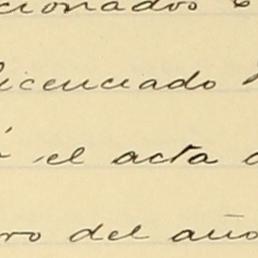 cionados
licenciado
el acta
ro del año